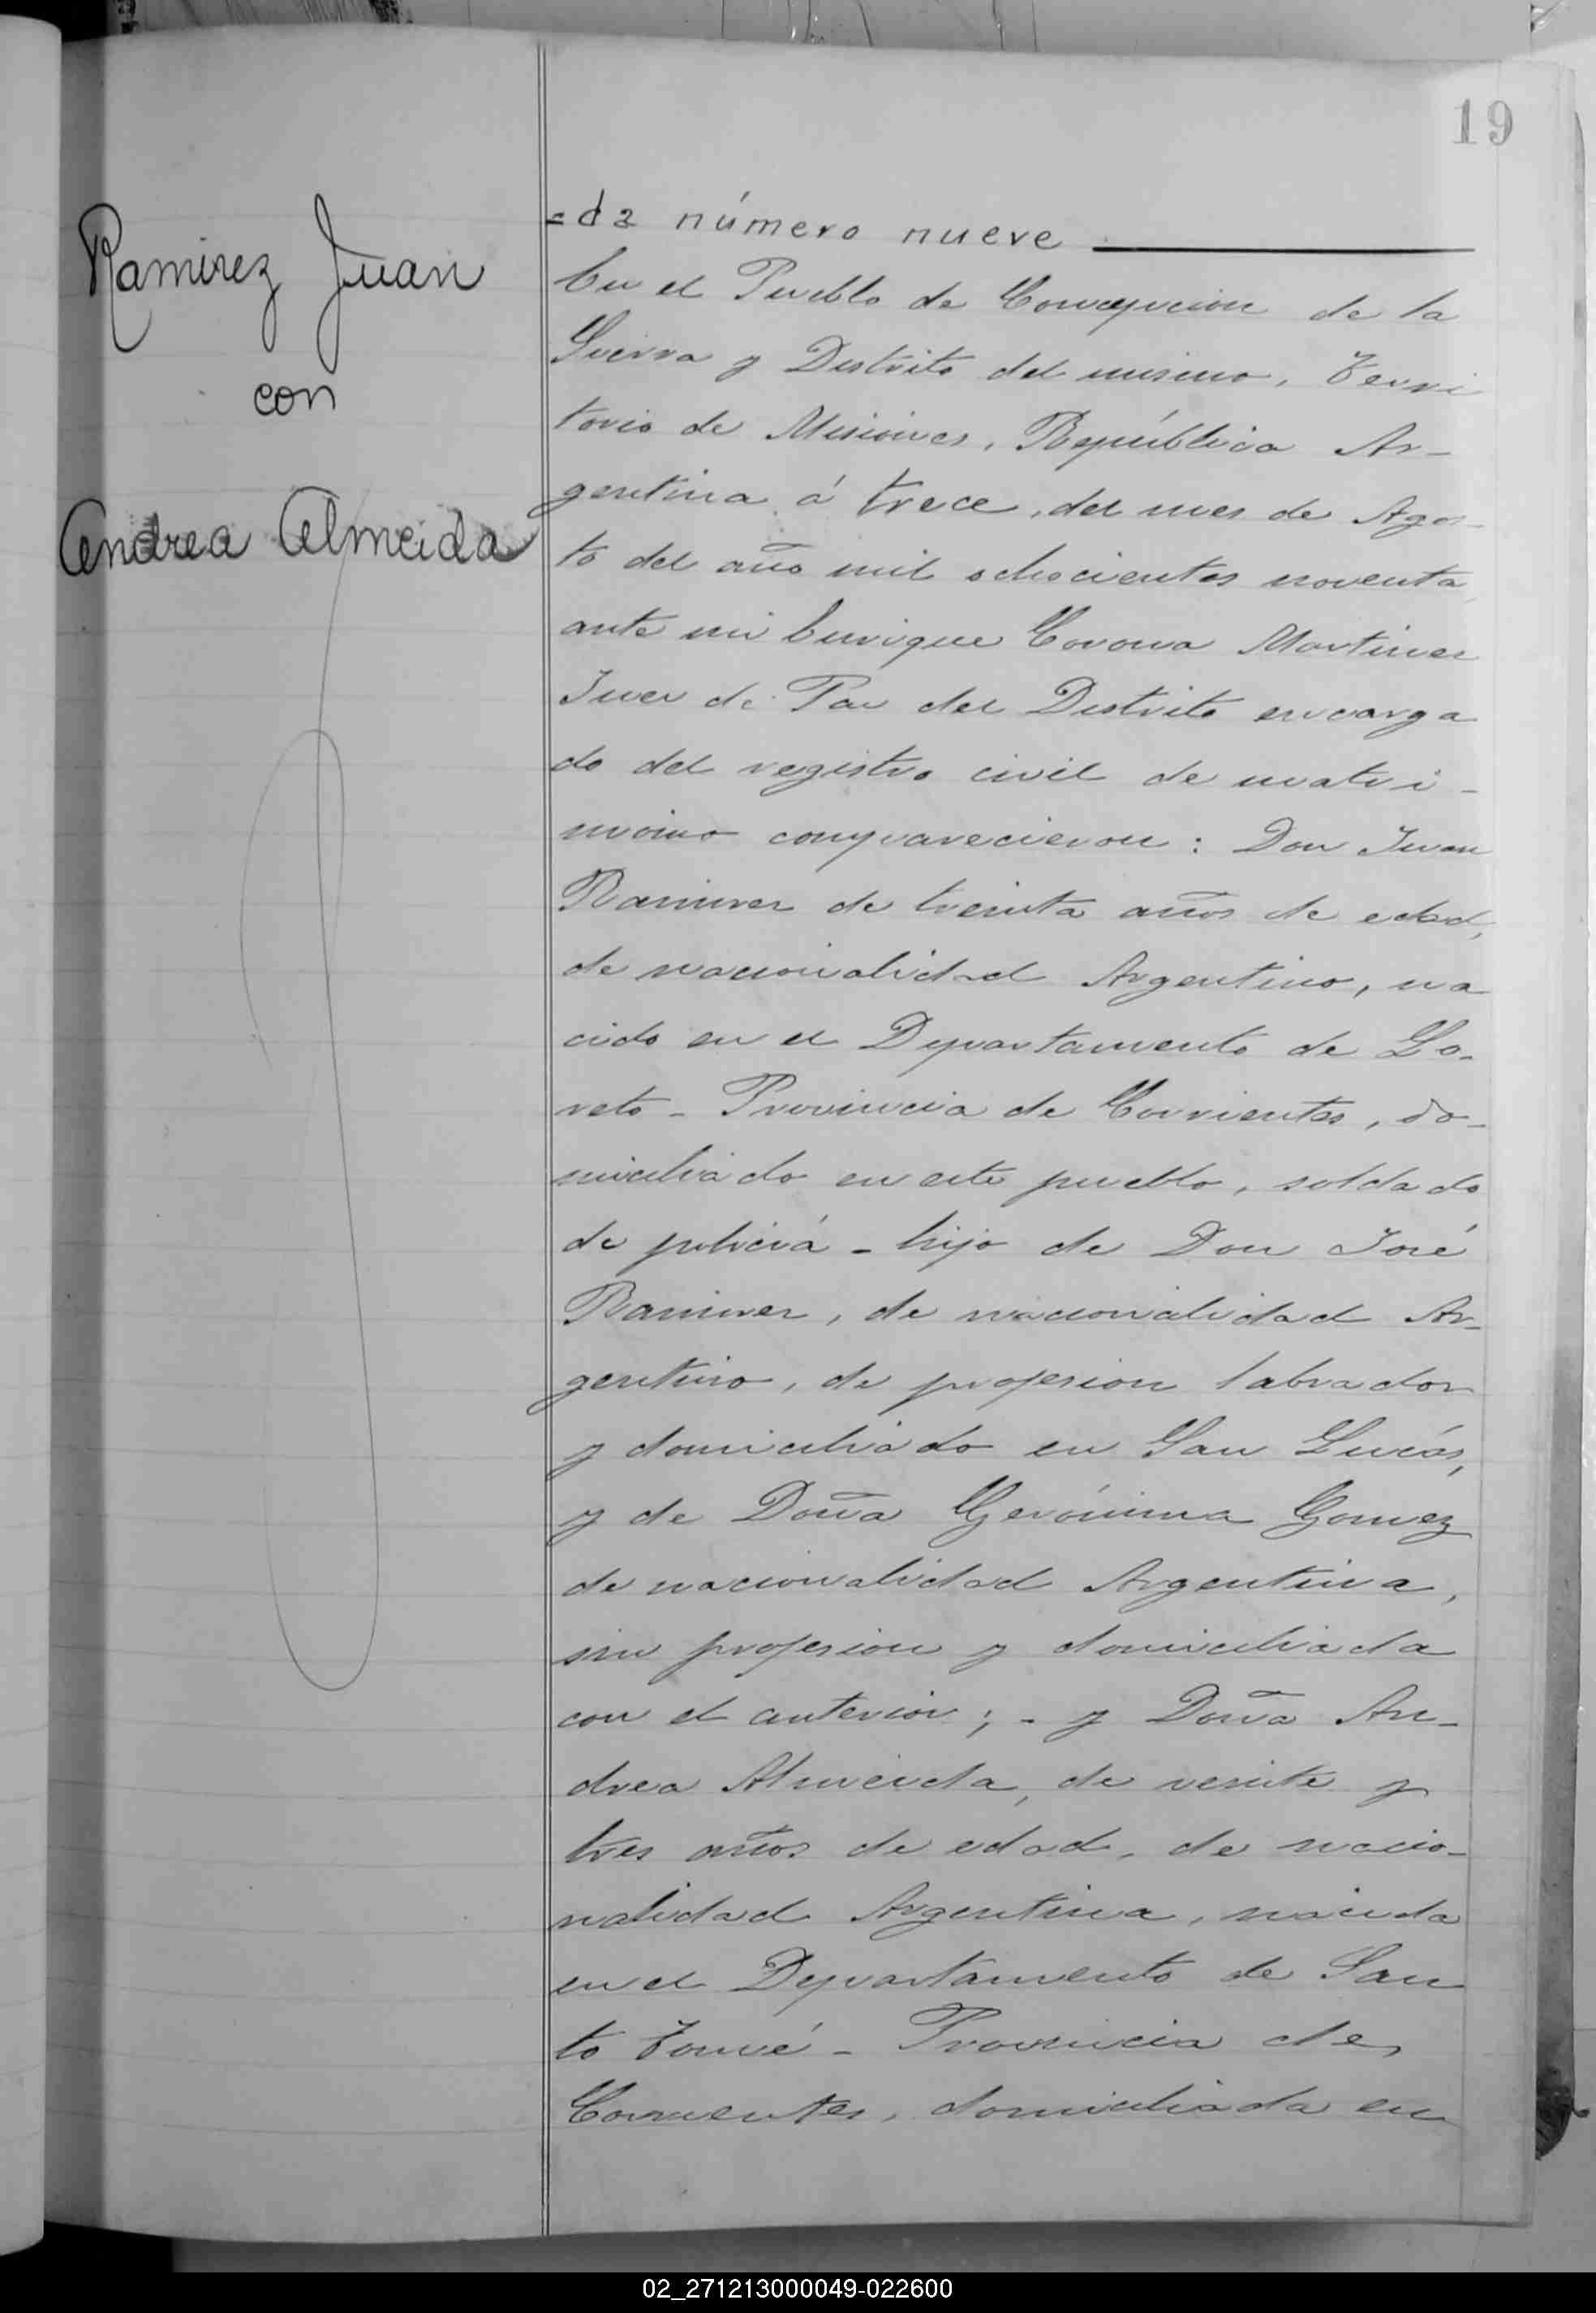 19
Ramirez Juan
con
Andrea Almeida
=da número nueve
En el Pueblo de Concepcion de la
Sierra y Distrito del mismo, Terri
torio de Misiones, República Ar-
gentina á trece, del mes de Agos-
to del año mil ochocientos noventa
ante mi Enrique Corona Martinez
Juez de Paz del Distrito encarga
do del registro civil de matri-
monio comparecieron: Don Juan
Ramirez de treinta años de edad,
de nacionalidad Argentino, na
cido en el Departamento de Lo-
reto - Provincia de Corrientes, do-
miciliado en este pueblo, soldado
de policiá - hijo de Don José
Ramirez, de nacionalidad Ar-
gentino, de profesion labrador
y domiciliado en San Lucás,
y de Doña Gerónima Gomez
de nacionalidad Argentina,
sin profesion y domiciliada
con el anterior; - y Doña An-
drea Almeida, de veinte y
tres años de edad, de nacio-
nalidad Argentina, nacida
en el Departamento de San
to Tomé - Provincia de
Corrientes, domiciliada en
02_271213000049-022600